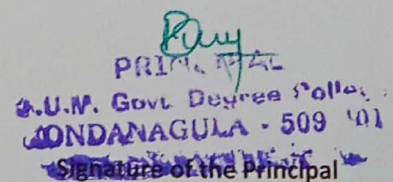 PRINCIPAL
U.M. Govt Degree Colle
KONDANAGULA - 509 01
Signature of the Principal